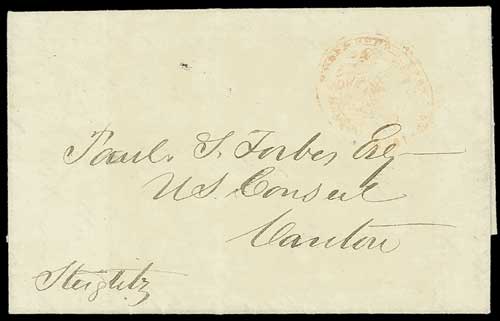 Paul S. Forbes Esq
US Consul
Canton
Steiglitz